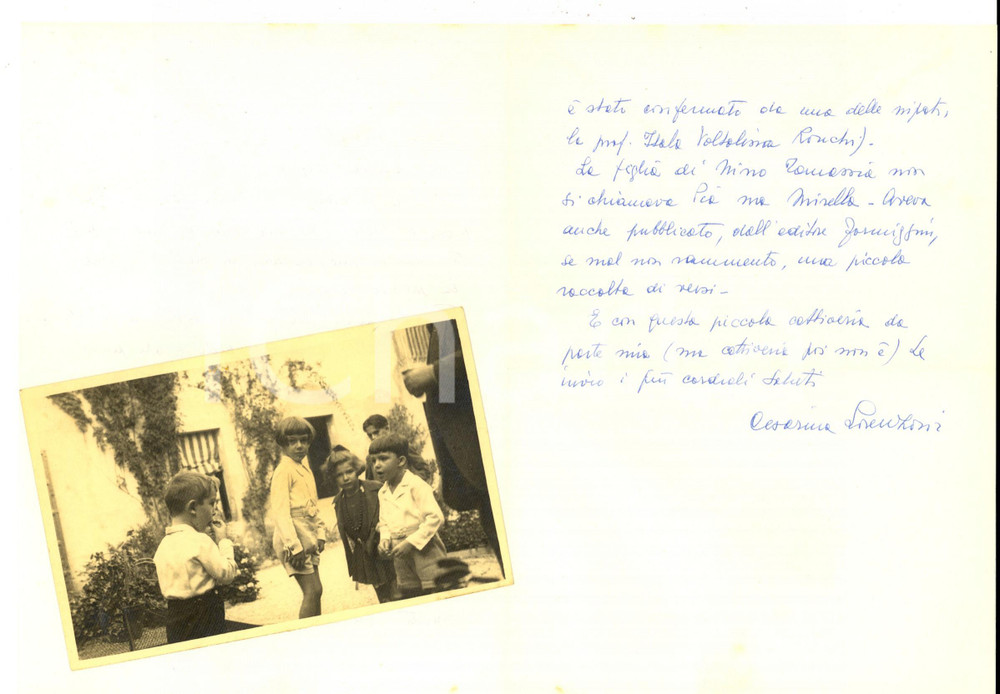 è stato confermato da una delle nipoti,
la prof. Itala Voltolina Ronchi) -
La figlia di Nino Tamassia non
si chiamava Pia ma Mirella - Aveva
anche pubblicato, dall'editore Formiggini,
se mal non rammento, una piccola
raccolta di versi -
E con questa piccola cattiveria da
parte mia (ma cattiveria poi non è) Le
invio i più cordiali saluti
Cesarina Lorenzoni